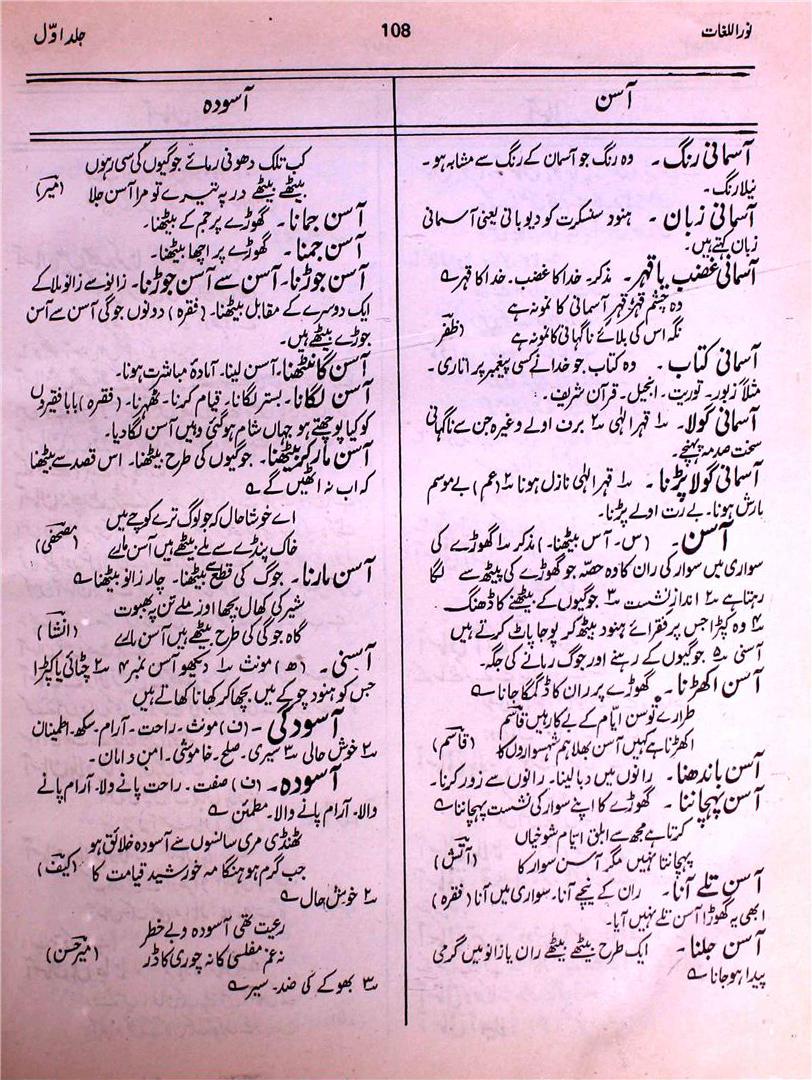 نور اللغات
108
جلد اوّل
آسن
آسودہ
آسمانی رنگ۔ وہ رنگ جو آسمان کے رنگ سے مشابہ ہو۔
نیلا رنگ۔
آسمانی زبان۔ ہنود سنسکرت کو دیو بانی یعنی آسمانی
زبان کہتے ہیں۔
آسمانی غضب یا قہر۔ مذکر۔ خدا کا غضب۔ خدا کا قہر ؎
وہ چشم قہرِ آسمانی کا نمونہ ہے
نگہ اس کی بلائے ناگہانی کا نمونہ ہے (ظفر)
آسمانی کتاب۔ وہ کتاب جو خدا نے کسی پیغمبر پر اتاری۔
مثلاً زبور۔ توریت۔ انجیل۔ قرآن شریف۔
آسمانی گولا۔ ۱؎ قہر الٰہی ۲؎ برف اولے وغیرہ جن سے ناگہانی
سخت صدمہ پہنچے۔
آسمانی گولا پڑنا۔ ۱؎ قہر الٰہی نازل ہونا ۲؎ (عم) بے موسم
بارش ہونا۔ بے رت اولے پڑنا۔
آسن۔ (س۔ آس بیٹھنا۔) مذکر ۱؎ گھوڑے کی
سواری میں سوار کی ران کا وہ حصّہ جو گھوڑے کی پیٹھ سے لگا
رہتا ہے ۲؎ انداز نشست ۳؎ جوگیوں کے بیٹھنے کا ڈھنگ
۴؎ وہ کپڑا جس پر فقرائے ہنود بیٹھ کر پوجا پاٹ کرتے ہیں
آسنی ۵؎ جوگیوں کے رہنے اور جوگ رمانے کی جگہ۔
آسن اکھڑنا۔ گھوڑے پر ران کا ڈگمگا جانا ؎
طرارے توسن ایّام کے بے کار ہیں قاسم
اکھڑتا ہے کہیں آسن بھلا ہم شہسواروں کا (قاسم)
آسن باندھنا۔ رانوں میں دبا لینا۔ رانوں سے زور کرنا۔
آسن پہچاننا۔ گھوڑے کا اپنے سوار کی نشست پہچاننا ؎
کرتا ہے مجھ سے ابلق ایّام شوخیاں
پہچانتا نہیں مگر آسن سوار کا (آتش)
آسن تلے آنا۔ ران کے نیچے آنا۔ سواری میں آنا (فقرہ)
ابھی یہ گھوڑا آسن تلے نہیں آیا۔
آسن جلنا۔ ایک طرح بیٹھے بیٹھے ران یا زانو میں گرمی
پیدا ہو جانا ؎
کب تلک دھونی رمائے جوگیوں کی سی رہوں
بیٹھے بیٹھے در پہ تیرے تو مرا آسن جلا (میر)
آسن جمانا۔ گھوڑے پر جم کے بیٹھنا۔
آسن جمنا۔ گھوڑے پر اچھا بیٹھنا۔
آسن جوڑنا۔ آسن سے آسن جوڑنا۔ زانو سے زانو ملا کے
ایک دوسرے کے مقابل بیٹھنا۔ (فقرہ) دونوں جوگی آسن سے آسن
جوڑے بیٹھے ہیں۔
آسن گانٹھنا۔ آسن لینا۔ آمادۂ مباشرت ہونا۔
آسن لگانا۔ بستر لگانا۔ قیام کرنا۔ ٹھہرنا۔ (فقرہ) بابا فقیروں
کو کیا پوچھتے ہو جہاں شام ہو گئی وہیں آسن لگا دیا۔
آسن مار کر بیٹھنا۔ جوگیوں کی طرح بیٹھنا۔ اس قصد سے بیٹھنا
کہ اب نہ اٹھیں گے ؎
اے خوشا حال کہ جو لوگ ترے کوچے میں
خاک پنڈے سے ملے بیٹھے ہیں آسن مارے (مصحفی)
آسن مارنا۔ جوگ کی قطع بیٹھنا۔ چار زانو بیٹھنا ؎
شیر کی کھال بچھا اور ملے تن پر بھبوت
گاہ جوگی کی طرح بیٹھے ہیں آسن مارے (انشا)
آسنی۔ (ھ) مونث ۱؎ دیکھو آسن نمبر ۴ ۲؎ چٹائی یا کپڑا
جس کو ہنود چوکے میں بچھا کر کھانا کھاتے ہیں
آسودگی۔ (ف) مونث۔ راحت۔ آرام۔ سکھ۔ اطمینان
۲؎ خوش حالی ۳؎ سیری۔ صلح۔ خاموشی۔ امن و امان۔
آسودہ۔ (ف) صفت۔ راحت پانے والا۔ آرام پانے
والا۔ آرام پانے والا۔ مطمئن ؎
ٹھنڈی مری سانسوں سے آسودہ خلائق ہو
جب گرم ہو ہنگامہ خورشید قیامت کا (کیف)
۲؎ خوش حال ؎
رعیت تھی آسودہ و بے خطر
نہ غم مفلسی کا نہ چوری کا ڈر (میر حسن)
۳؎ بھوکے کی ضد۔ سیر ؎